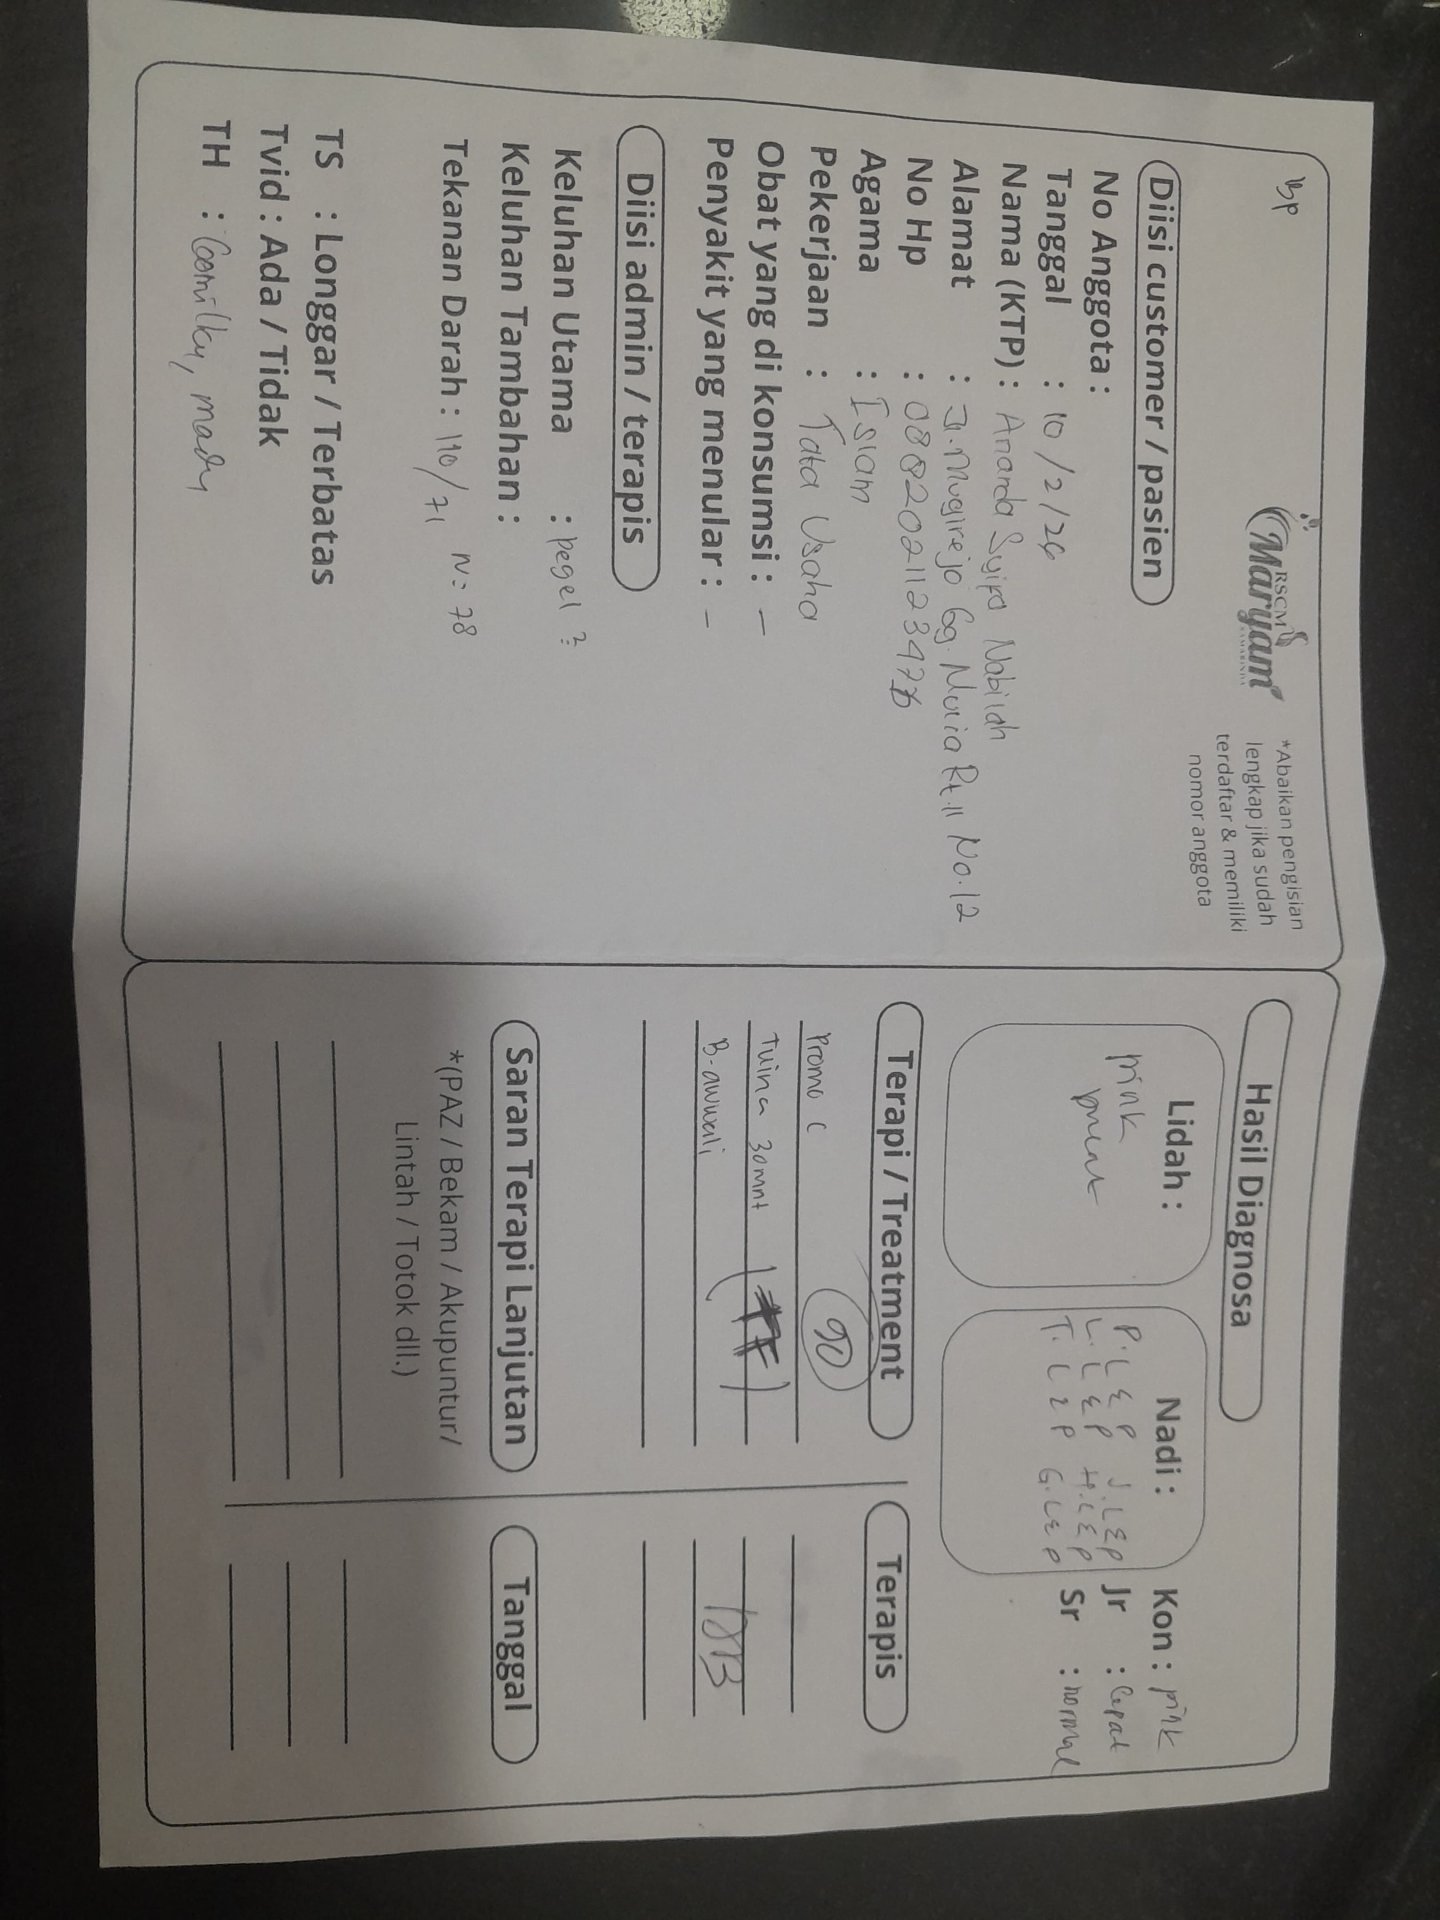 Bp
RSCM
Maryam
SAMARINDA
*Abaikan pengisian
lengkap jika sudah
terdaftar & memiliki
nomor anggota
Diisi customer / pasien
No Anggota :
Tanggal : 10/2/26
Nama (KTP) : Ananda Syifa Nabilah
Alamat : Jl. Mugirejo Gg. Muria Rt.11 No.12
No Hp :
Agama : Islam
Pekerjaan : Tata Usaha
Obat yang di konsumsi : -
Penyakit yang menular : -
Diisi admin / terapis
Keluhan Utama : pegel ²
Keluhan Tambahan :
Tekanan Darah : 110/71 N = 78
TS : Longgar / Terbatas
Tvid : Ada / Tidak
TH : madu
Hasil Diagnosa
Lidah :
pink
pucat
Nadi :
P. L E P J. L E P
L. L E P H. L E P
T. L 2 P G. L E P
Kon : pink
Jr : Cepat
Sr : normal
Terapi / Treatment
Promo C
90
Tuina 30mnt
B. awwali
Terapis
Saran Terapi Lanjutan
*(PAZ / Bekam / Akupuntur/
Lintah / Totok dll.)
Tanggal